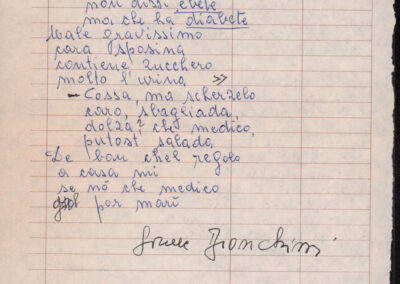 non dissi ebete
ma che ha diabete
Male gravissimo
cara sposina
contiene zucchero
molto l'urina »
– Cossa, ma scherzelo
caro, sbagliada,
dolza? che medico,
putost salada
De bon chel regolo
a casa mi
se nó che medico
gò l por marì
Bronchini